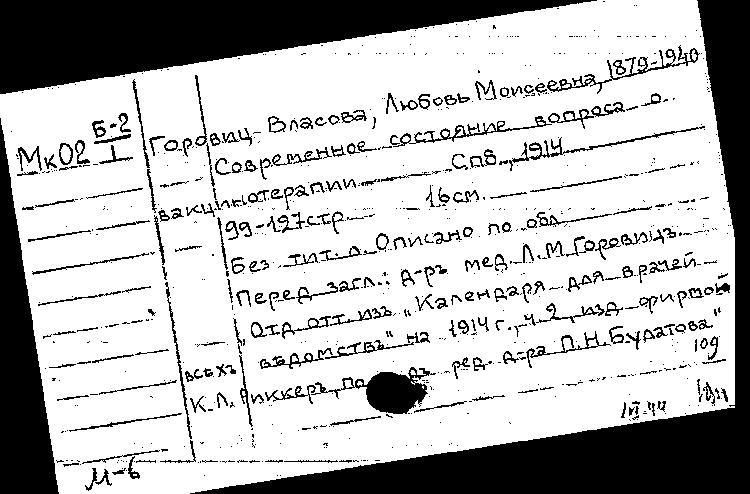 МкО2 Б-2/I
Горовиц-Власова, Любовь Моисеевна, 1879-1940
Современное состояние вопроса о
вакцинотерапии СПб., 1914
99-127стр 16см.
Без тит. л. Описано по обл
Перед загл.: д-ръ мед. Л.М. Горовицъ.
"Отд. отт. изъ "Календаря для врачей
всѣхъ вѣдомствъ" на 1914 г., ч. 2, изд. фирмой
К.Л. Риккеръ, по дъ ред. д-ра П.Н. Булатова"
109
М-6